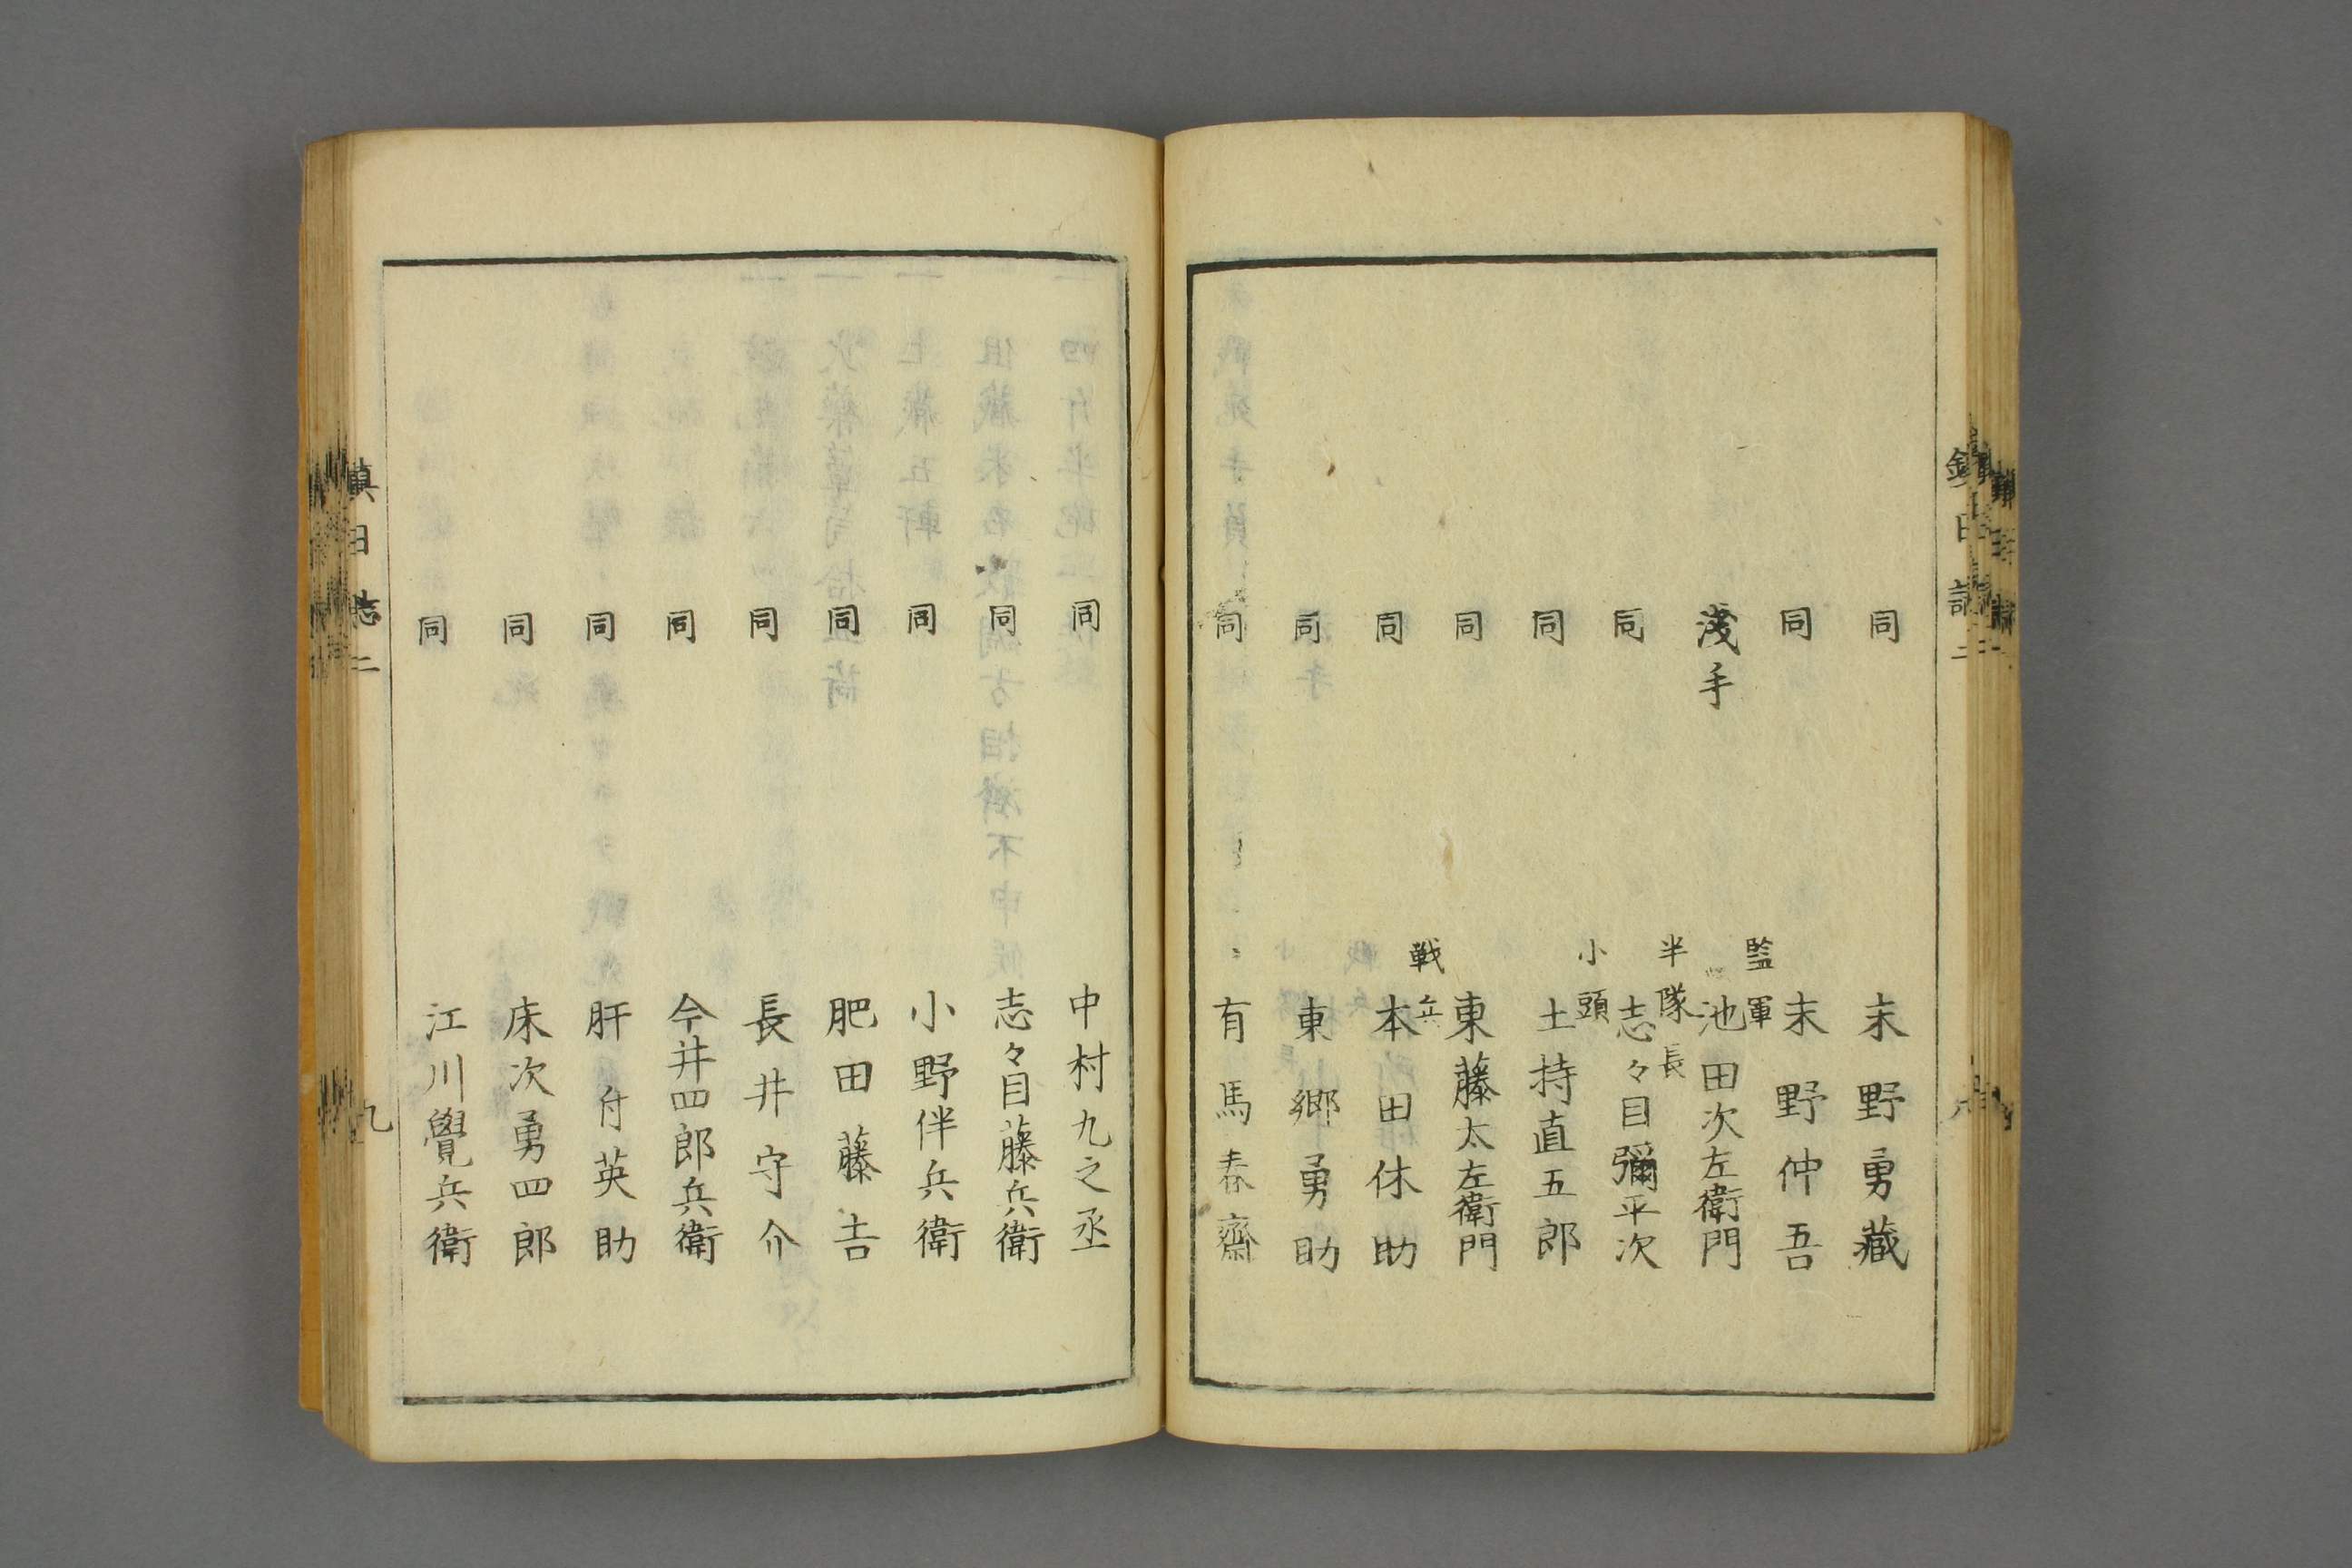 同 末野勇藏
同 末野仲吾
監軍
淺手 池田次左衛門
半隊長
同 志々目彌平次
小頭
同 土持直五郎
同 東藤太左衛門
戦兵
同 本田休助
同 東郷勇助
同 有馬春齋
同 中村九之丞
同 志々目藤兵衛
同 小野伴兵衛
同 肥田藤吉
同 長井守介
同 今井四郎兵衛
同 肝付英助
同 床次勇四郎
同 江川覺兵衛
日志二
九